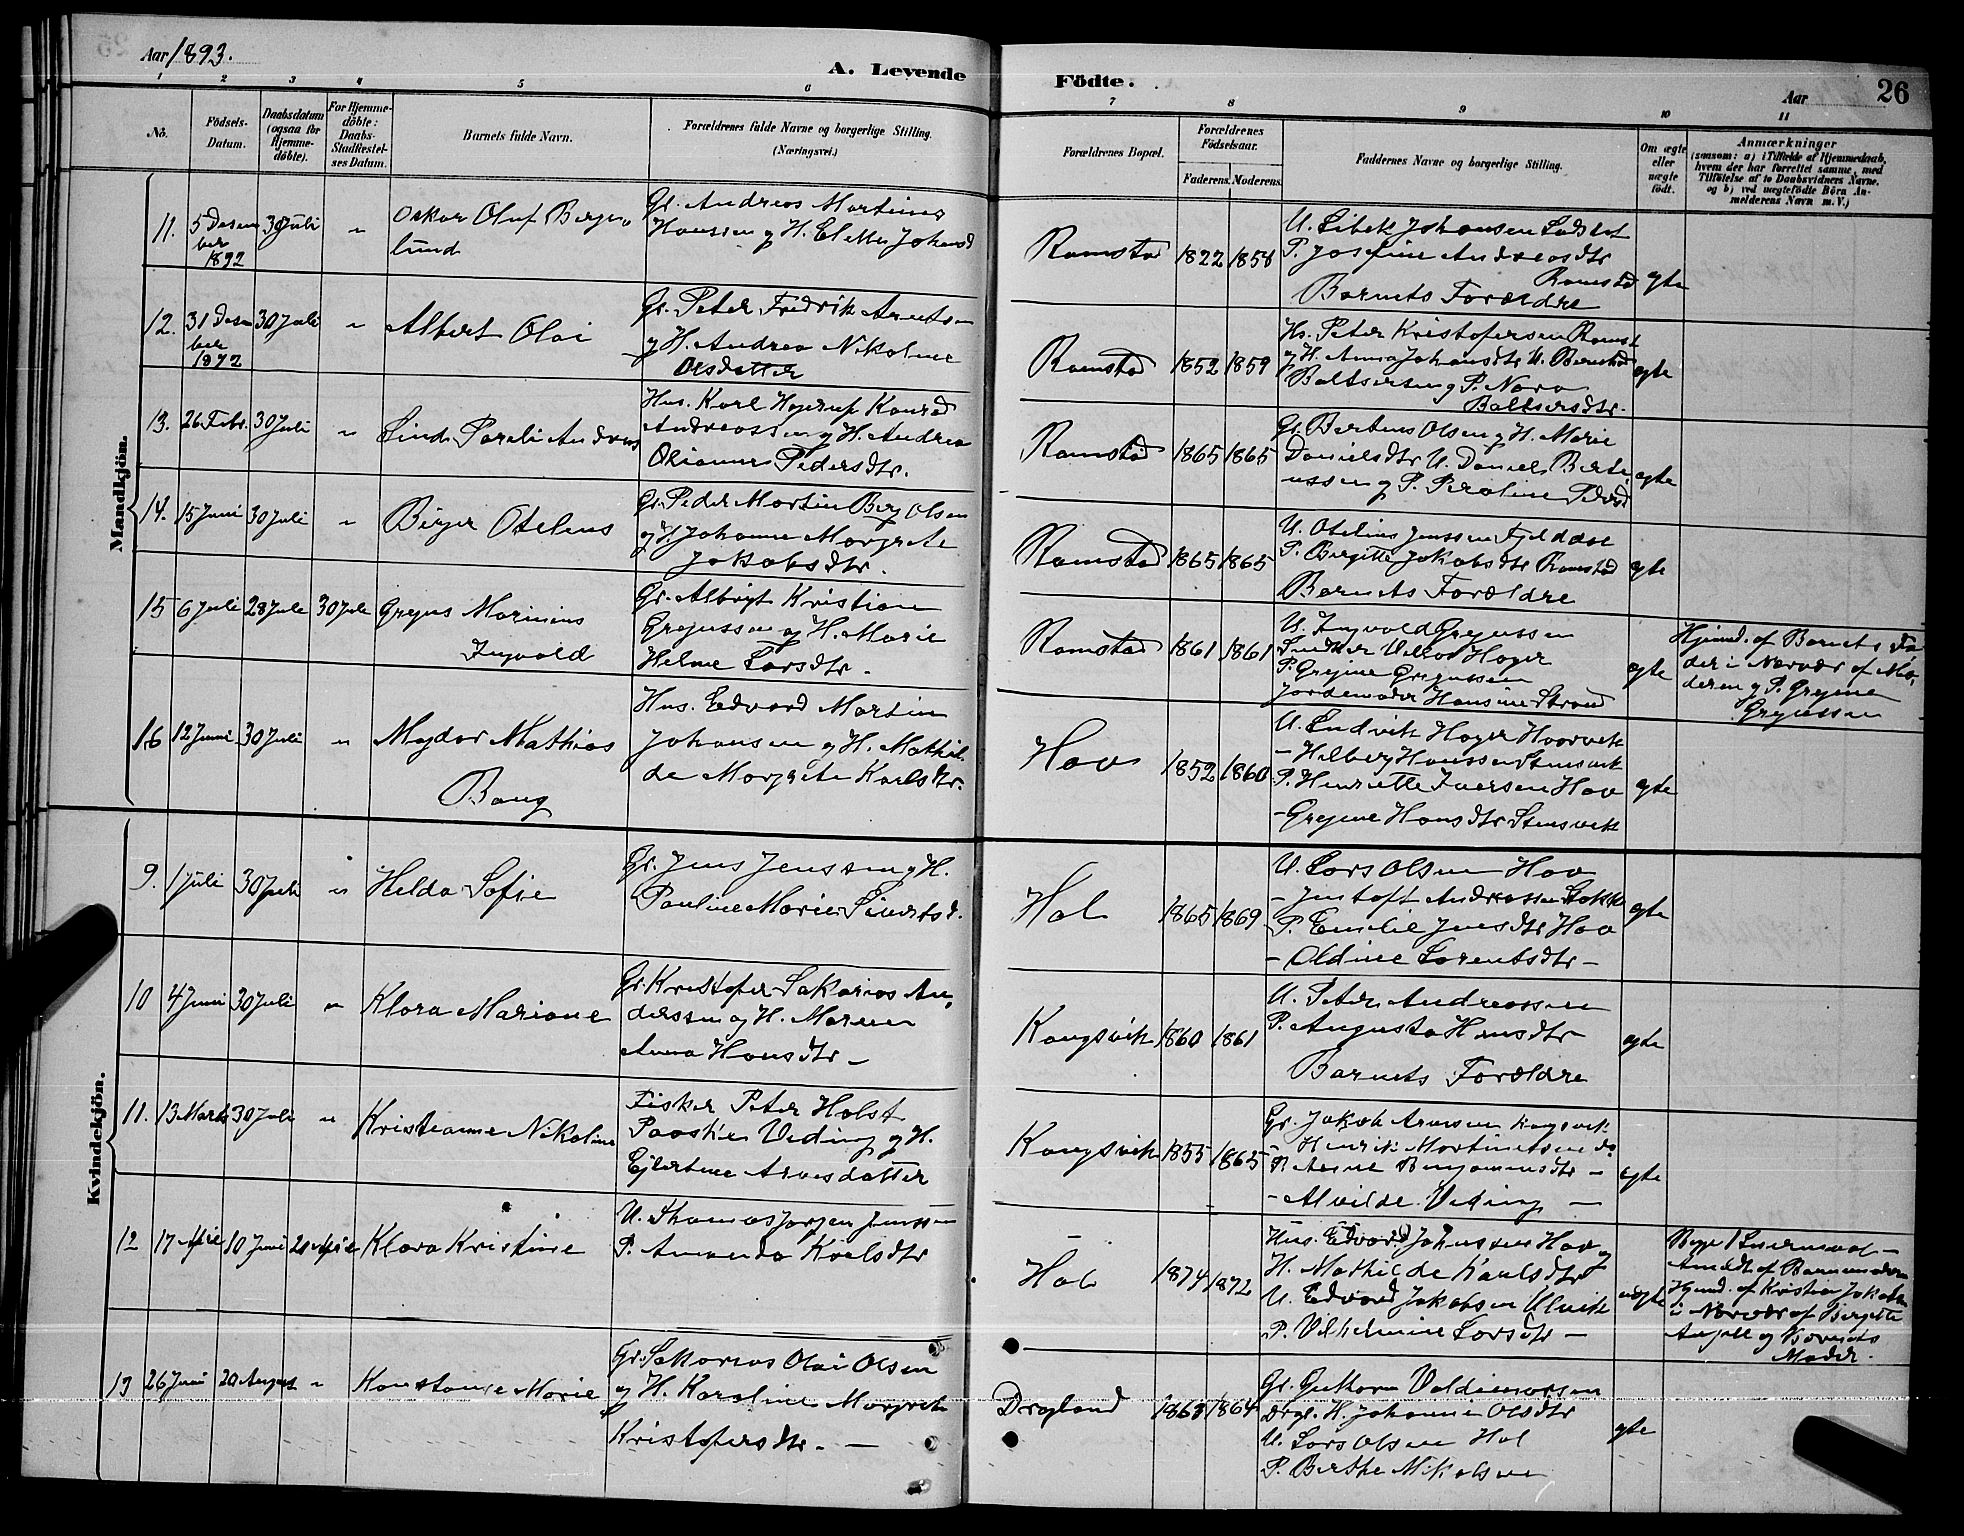 Aar 1893.
A. Levende Födte.
Aar
26
1 2 3 4 5 6 7 8 9 10 11
No.
Födsels-Datum.
Daabsdatum (ogsaa for Hjemme-döbte).
For Hjemme-döbte: Daabs-Stadfæstel-ses Datum.
Barnets fulde Navn.
Forældrenes fulde Navne og borgerlige Stilling.
(Næringsvei.)
Forældrenes Bopæl.
Forældrenes Födselsaar.
Faderens. Moderens.
Faddernes Navne og borgerlige Stilling.
Om ægte eller uægte födt.
Anmærkninger
(saasom: a) i Tilfælde af Hjemmedaab, hvem der har forrettet samme, med Tilföielse af to Daabsvidners Navne, og b) ved uægtefödte Börn An-melderens Navn m. V.)
Mandkjön.
11. 5 Desem
ber
1892
30 Juli
"
Oskar Oluf Berg
lund
Gr. Andreas Martinus
Hansen og H.
Ramstad 1822 1858
U. Johansen
P. Josefine Andreasdtr
Ramstad
Barnets Forældre
egte
12. 31 Desem
ber
1892
30 Juli
"
Albert Olai
Gr. Peter Fredrik Arntsen
og H. Andrea Nikoline
Olsdatter
Ramstad 1852 1859
Hs. Peter Kristofersen Ramst
og H. Anna Johansdtr U.
Baltsersen og P. Nora
Baltsersdtr.
egte
13. 26 Febr. 30 Juli
"
Andreas
Hus. Karl Hagerup Konrad
Andreassen og H. Andrea
Olianna Pedersdtr.
Ramstad 1865 1865
Gr. Bertens Olsen og H. Marie
Danielsdtr U. Daniel Berte
nssen og P.
egte
14. 15 Juni 30 Juli
"
Birger Otelius
Gr. Peder Martin Berg Olsen
og H. Johanna Margrete
Jakobsdtr.
Ramstad 1865 1865
U. Otelius Jenssen
P. Birgitte Jakobsdtr Ramstad
Barnets Forældre
egte
15 6 Juli 28 Juli 30 Juli
Grejus Marinius
Ingvald
Gr. Albrigt Kristian
Grejussen og H. Marie
Helene Larsdtr.
Ramstad 1861 1861
U. Ingvald Grejussen
P. Grejine Grejussen
Jordemoder Hansine Strand
egte
Hjemd. af Barnets Fa
der i Nærvær af Mo
deren og P. Grejine
Grejussen
16 12 Juni 30 Juli
"
Magdar Mathias
Bang
Hus. Edvard Martin
Johansen og H. Mathil
de Margrete Karlsdtr.
Hov 1852 1860
U. Ludvik Hager
- Hilberg Hanssen Stensvik
P. Henriette Iversen Hov
- Grejine Hansdtr Stensvik
egte
Kvindekjön.
9. 1 Juli 30 Juli
"
Hilda Sofie
Gr. Jens Jenssen og H.
Pauline Marie
Hol 1865 1869
U. Lars Olsen Hov
- Jentoft Andreassen
P. Emilie Jensdtr Hov
- Oldine Lorentsdtr -
egte
10 4 Juni 30 Juli
"
Klara Mariane
Gr. Kristofer Sakarias An
dersen og H. Maren
Anna Hansdtr -
Kongsvik 1860 1861
U. Peter Andreassen
P. Augusta Hansdtr
Barnets Forældre
egte
11. 13 Marts 30 Juli
"
Kristianne Nikoline
Fisker Peter Holst
Paaske Veding og H.
Ejlertine Arnesdatter
Kongsvik 1855 1865
Gr. Jakob Arnesen Kongsvik
- Henrik Martinussen do
P. Benjaminsdtr -
- Alvilde Veding -
egte
12 17 10 Juni 20
Klara Kristine
U. Thomas Jørgen Jenssen
P. Amanda Karlsdtr
Hol 1874 1872
Hus. Edvard Johansen Hov og
H. Mathilde Karlsdtr
U. Edvard Jakobsen Ulvik
P. Vilhelmine Larsdtr -
uegte
Anmeldt af Barnemoderen
Hjemd. af Kristian Jakobsen
i Nærvær af Birgitte
og Barnets
Moder.
13 26 Juni 20 August
"
Konstanse Marie
Gr. Sakarias Olai Olsen
og H. Karoline Margrete
Kristofersdtr. -
Dragland 1865 1864
Gr. Guthorm Valdemarsen
Drgl. H. Johanna Olsdtr
U. Lars Olsen Hol
P. Berthe Mikalsen
egte